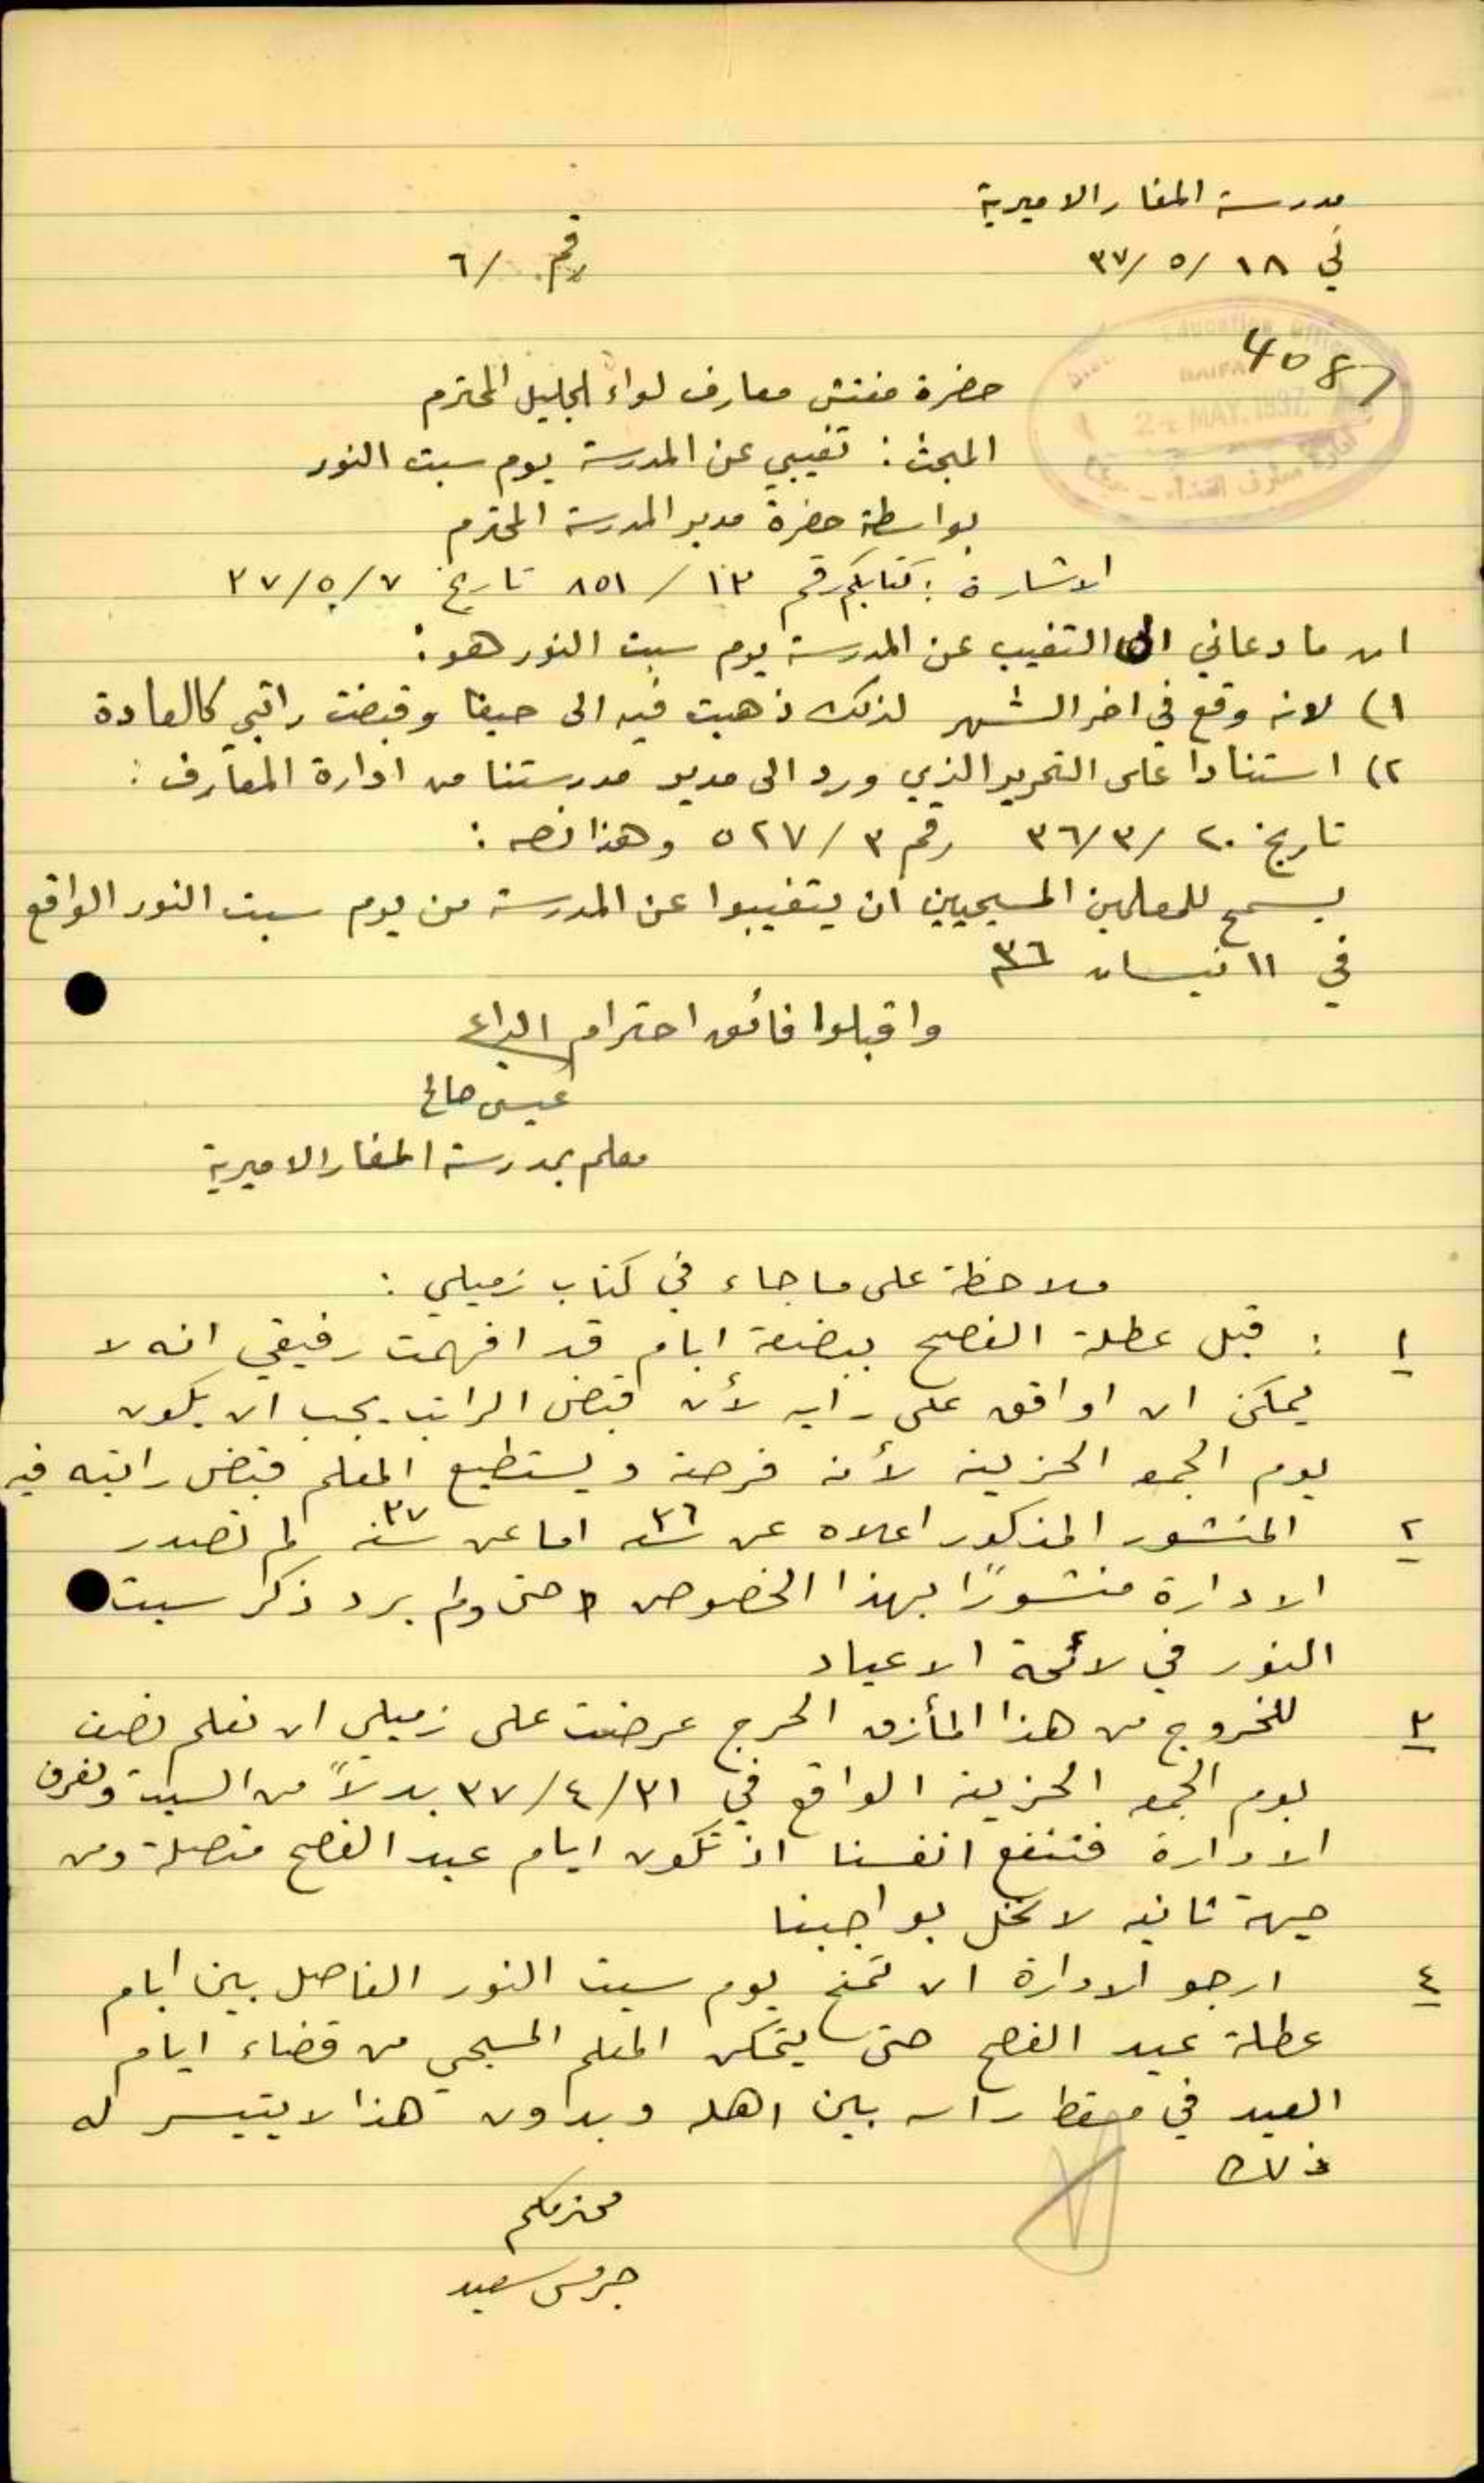 مدرسة المغار الاميرية
في ١٨ /٥ /٣٧
رقم /٦
Education Office
HAIFA
MAY. 1937
حضرة مفتش معارف لواء الجليل المحترم
المبحث : تغيبي عن المدرسة يوم سبت النور
بواسطة حضرة مدير المدرسة المحترم
الاشارة : كتابكم رقم ١٣ / ٨٥١ تاريخ ٧ /٥ /٣٧
ان ما دعاني الى التغيب عن المدرسة يوم سبت النور هو :
١) لانه وقع في اخر الشهر لذلك ذهبت فيه الى حيفا وقبضت راتبي كالعادة
٢) استنادا على التحرير الذي ورد الى مدير مدرستنا من ادارة المعارف :
تاريخ ٢٠ /٣ /٣٦ رقم ٣ / ٥٢٧ وهذا نصه :
يسمح للمعلمين المسيحيين ان يتغيبوا عن المدرسة من يوم سبت النور الواقع
في ١١ نيسان ٣٦
واقبلوا فائق احترام الداعي
عيسى صالح
معلم بمدرسة المغار الاميرية
ملاحظة على ما جاء في كتاب زميلي :
١ : قبل عطلة الفصح ببضعة ايام قد افهمت رفيقي انه لا
يمكن ان اوافق على رايه لأن قبض الراتب يجب ان يكون
يوم الجمعه الحزينه لأنه فرصة ويستطيع المعلم قبض راتبه فيه
٢ المنشور المذكور اعلاه عن سنة ٣٦ اما عن سنه ٣٧ لم تصدر
الادارة منشورًا بهذا الخصوص حتى ولم يرد ذكر سبت
النور في لائحة الاعياد
٣ للخروج من هذا المأزق الحرج عرضت على زميلي ان نعلم نصف
يوم الجمعه الحزينه الواقع في ٣١ /٤ /٣٧ بدلاً من السبت ونعرف
الادارة فننفع انفسنا اذ تكون ايام عيد الفصح متصلة ومن
جهة ثانيه لا نخل بواجبنا
٤ ارجو الادارة ان تمنح يوم سبت النور الفاصل بين ايام
عطلة عيد الفصح حتى يتمكن المعلم المسيحي من قضاء ايام
العيد في مسقط راسه بين اهله وبدون هذا لا يتيسر له
ذلك
محترمكم
جريس سعيد